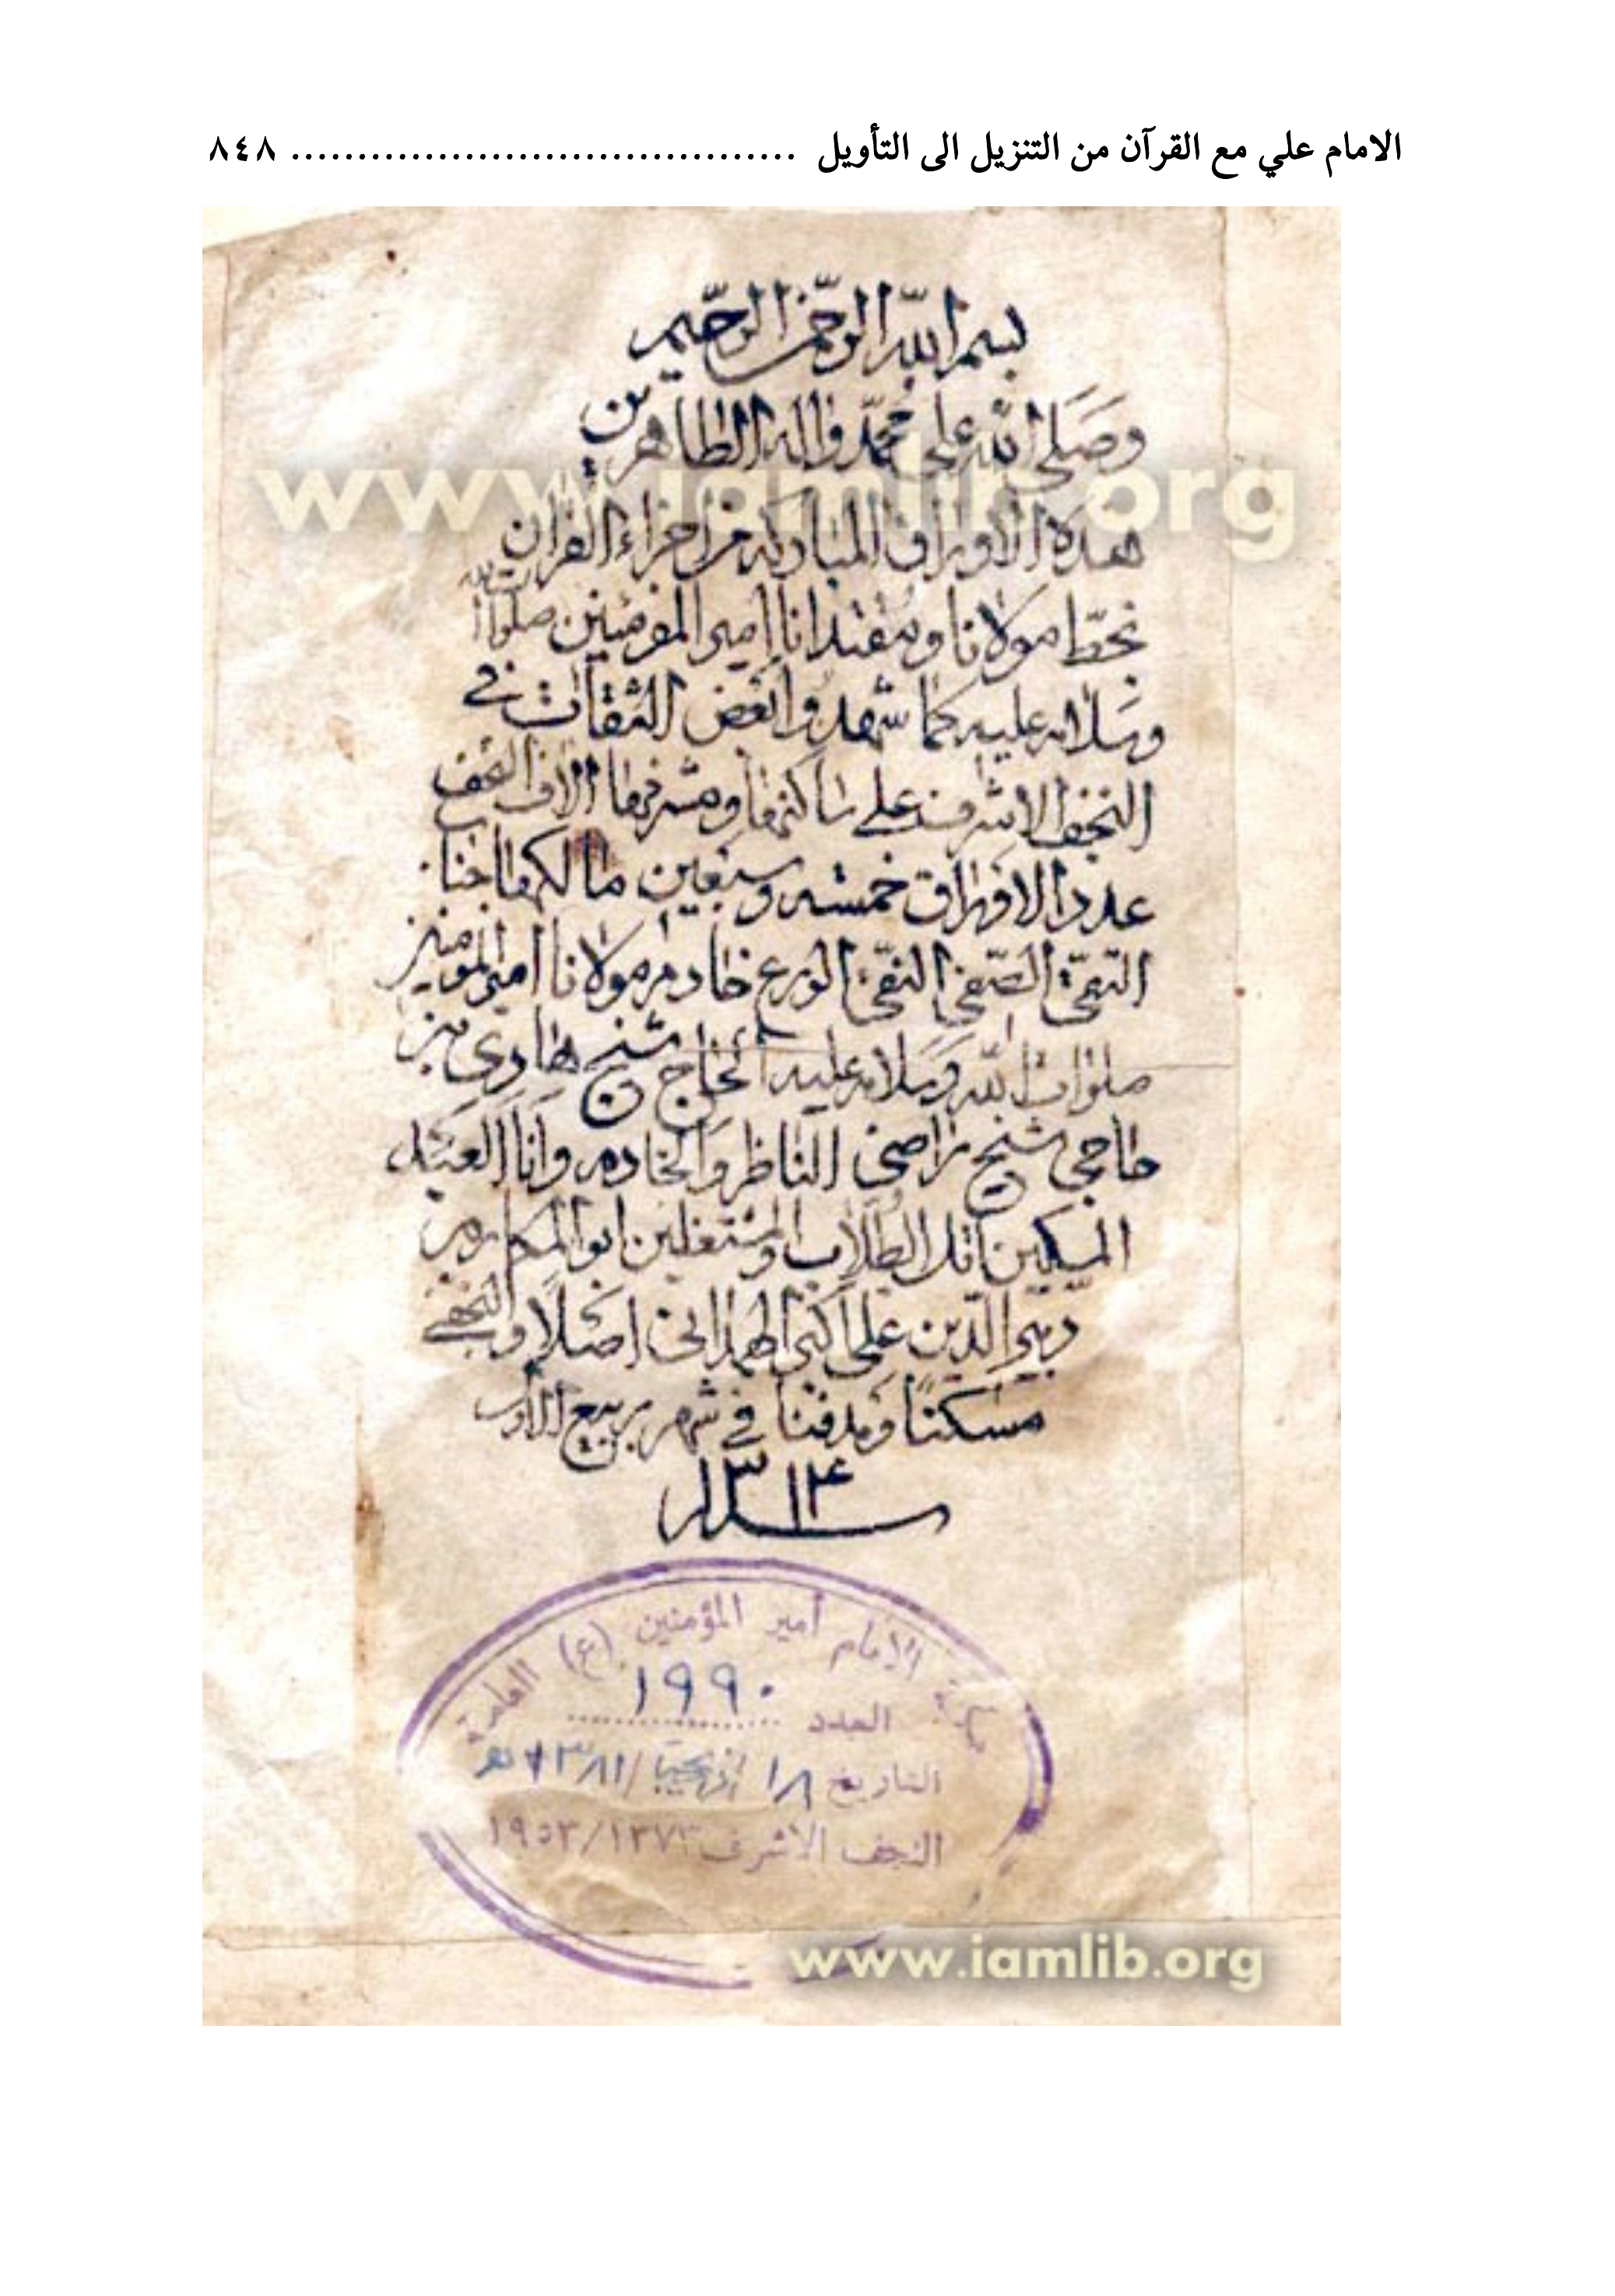 الامام علي مع القرآن من التنزيل الى التأويل ....................................... ٨٤٨
بسم الله الرحمن الرحيم
وصلى الله على محمد واله الطاهرين
هذه الاوراق المباركه من اجزاء القران
بخط مولانا ومقتدانا امير المؤمنين صلوات الله
وسلامه عليه كما شهدوا بعض الثقات في
النجف الاشرف على ساكنها ومشرفها الاف التحف
عدد الاوراق خمسه وسبعين مالكها جناب
التقي الصفي النقي الورع خادم مولانا امير المؤمنين
صلوات الله وسلامه عليه الحاج شيخ هادي بن
حاجي شيخ راضي الناظر والخادم وانا العبد
المسكين اقل الطلاب والمشتغلين ابو المكارم بن
الدين علي اكبر الهمداني اصلا والنجفي
مسكنا ومدفنا في شهر ربيع الاول
سنه ١٣١٤
www.iamlib.org
الامام أمير المؤمنين (ع) العامة
العدد ١٩٩٠
التاريخ
النجف الاشرف ١٣٧٣/١٩٥٣
www.iamlib.org